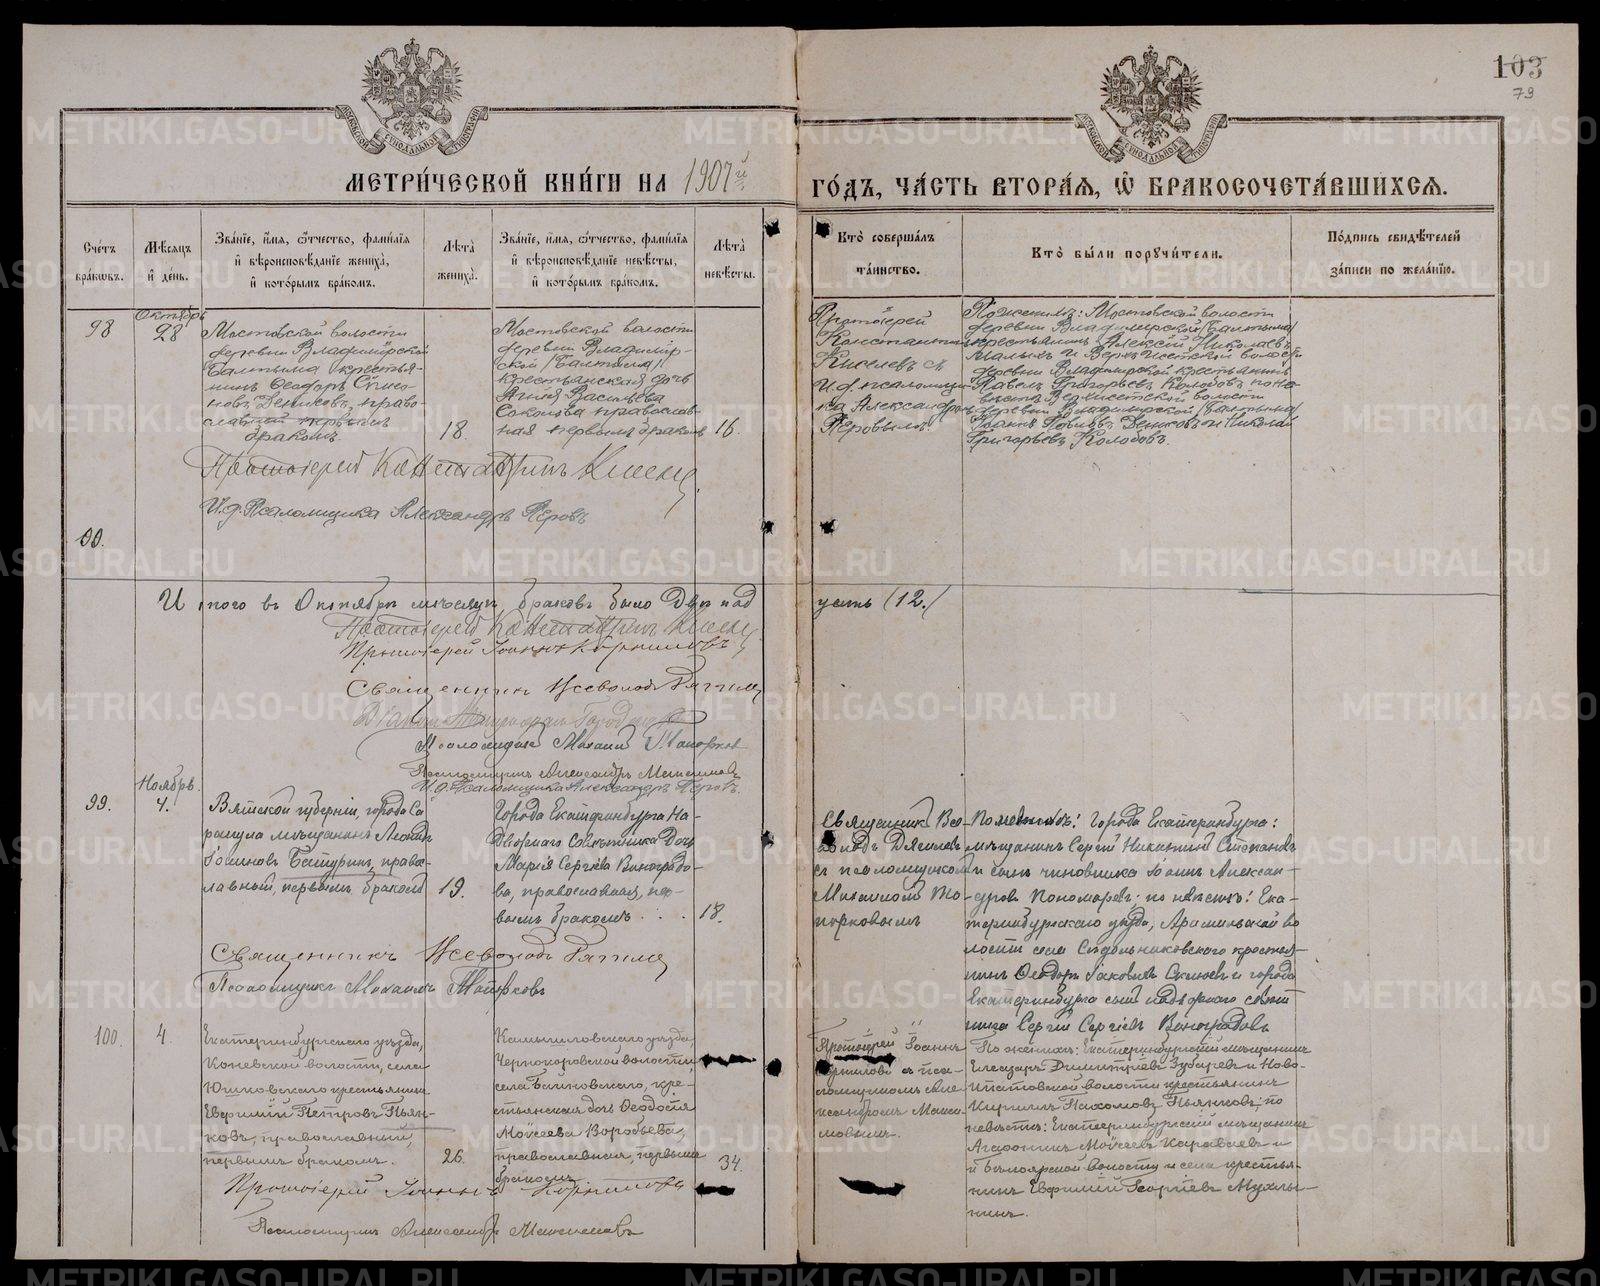 103
79
МЕТРИ́ЧЕСКОЙ КНИ́ГИ НА 1907й
ГО́ДЪ, ЧА́СТЬ ВТОРА́Я, Ѿ БРАКОСОЧЕТА́ВШИХСЯ.
Сче́тъ бра́ковъ.
Мѣ́сяцъ и҆ де́нь.
Зва́нїе, и҆́мя, ѻ҆́тчество, фами́лїя
и҆ вѣроисповѣ́данїе жениха̀,
и҆ кото́рымъ бра́комъ.
Лѣ́та жениха̀.
Зва́нїе, и҆́мя, ѻ҆́тчество, фами́лїя
и҆ вѣроисповѣ́данїе невѣ́сты,
и҆ кото́рымъ бра́комъ.
Лѣ́та невѣ́сты.
Кто̀ соверша́лъ
та́инство.
Кто̀ бы́ли поручи́тели.
По́дпись свидѣ́телей
за́писи по жела́нїю.
98
Октябрь
28
Мостовской волости
деревни Владимірской
(Балтыма) крестья-
нинъ Ѳеодоръ
новъ Денисовъ, право-
славный первымъ
бракомъ
18.
Мостовской волости
деревни Владимір-
ской (Балтыма)
крестьянская дочь
Васильева
Соколова православ-
ная первымъ бракомъ
16.
Протоіерей
Константинъ
Киселевъ съ
И.д. псаломщи-
ка Александромъ
Перовымъ.
По женихѣ: Мостовской волости
деревни Владимірской (Балтыма)
крестьянинъ Алексѣй Николаевъ
Малыхъ и Верхисетской волости
деревни Владимірской крестьянинъ
Павелъ Григорьевъ Колобовъ по не-
вѣстѣ Верхисетской волости
деревни Владимірской (Балтыма)
Іоаннъ Денисовъ и Николай
Григорьевъ Колобовъ.
Протоіерей Константинъ Киселевъ
И.д. Псаломщика Александръ Перовъ
99.
Итого въ Октябрѣ мѣсяцѣ браковъ было двѣнад
цать (12.)
Протоіерей Константинъ Киселевъ
Протоіерей Іоаннъ Корниловъ
Священникъ Всеволодъ
Діаконъ
Псаломщикъ Михаилъ Топорковъ
Псаломщикъ Александръ Максимовъ
И.д. Псаломщика Александръ Перовъ.
99.
Ноябрь.
4.
Вятской губерніи, города Са
рапула мѣщанинъ Леонидъ
Іоанновъ Батуринъ, право-
славный, первымъ бракомъ
19.
Города Екатеринбурга На-
дворнаго Совѣтника Дочь
Марія Сергіева Виноградо-
ва, православная, пер-
вымъ бракомъ . . .
18.
Священникъ Все-
володъ
съ псаломщикомъ
Михаиломъ То-
порковымъ
По женихѣ: Города Екатеринбурга:
мѣщанинъ Сергій Никитинъ Степановъ
и сынъ чиновника Іоаннъ Алексан-
дровъ Пономаревъ; по невѣстѣ: Ека-
теринбургскаго уѣзда, Арамильской во
лости села крестья-
нинъ Ѳеодоръ Іаковлевъ и города
Екатеринбурга сынъ надворнаго совѣт
ника Сергій Сергіевъ Виноградовъ
Священникъ Всеволодъ
Псаломщикъ Михаилъ Топорковъ
100.
4.
Екатеринбургскаго уѣзда,
Коневской волости, села
крестьянинъ
Евфимій Петровъ Пьян-
ковъ, православный,
первымъ бракомъ.
26.
Камышловскаго уѣзда
Чернокоровской волости,
села кре-
стьянская дочь Ѳеодосія
Моисеева Воробьева,
православная, первымъ
бракомъ
34.
Протоіерей Іоаннъ
Корниловъ съ пса-
ломщикомъ Але-
ксандромъ Макси-
мовымъ.
По женихѣ: Екатеринбургскій мѣщанинъ
Елеазаръ Димитріевъ Зубаревъ и Ново-
ипатовской волости крестьянинъ
Кириллъ Пахомовъ Пьянковъ; по
невѣстѣ: Екатеринбургскій мѣщанинъ
Агафонъ Моисеевъ Караваевъ и
Бѣлоярской волости и села крестья-
нинъ Евфимій Георгіевъ
Протоіерей Іоаннъ Корниловъ
Псаломщикъ Александръ Максимовъ
METRIKI.GASO-URAL.RU